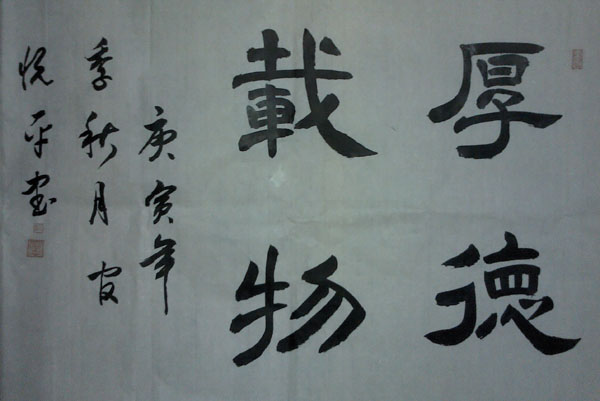 厚德
載物
庚寅年
季秋月
悦平書